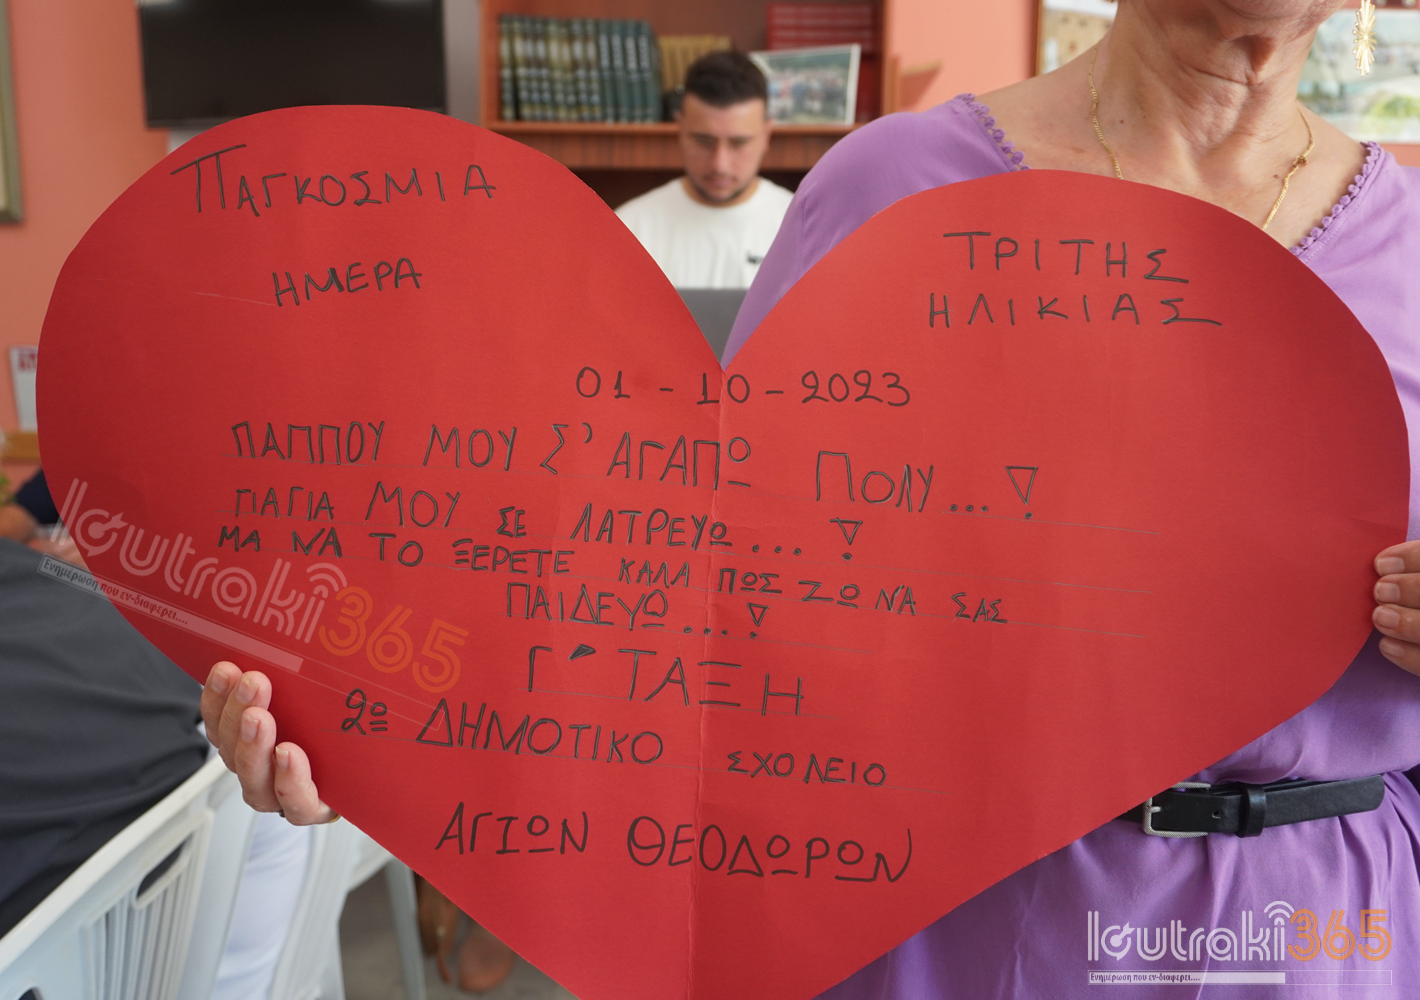 ΠΑΓΚΟΣΜΙΑ
ΗΜΕΡΑ
ΤΡΙΤΗΣ
ΗΛΙΚΙΑΣ
01-10-2023
ΠΑΠΠΟΥ ΜΟΥ Σ' ΑΓΑΠΩ ΠΟΛΥ...!
ΓΙΑΓΙΑ ΜΟΥ ΣΕ ΛΑΤΡΕΥΩ...!
ΜΑ ΝΑ ΤΟ ΞΕΡΕΤΕ ΚΑΛΑ ΠΩΣ ΖΩ ΝΑ ΣΑΣ
ΠΑΙΔΕΥΩ...!
Γ' ΤΑΞΗ
2ο ΔΗΜΟΤΙΚΟ ΣΧΟΛΕΙΟ
ΑΓΙΩΝ ΘΕΟΔΩΡΩΝ
loutraki365
Ενημέρωση που εν-διαφέρει....
loutraki365
Ενημέρωση που εν-διαφέρει....